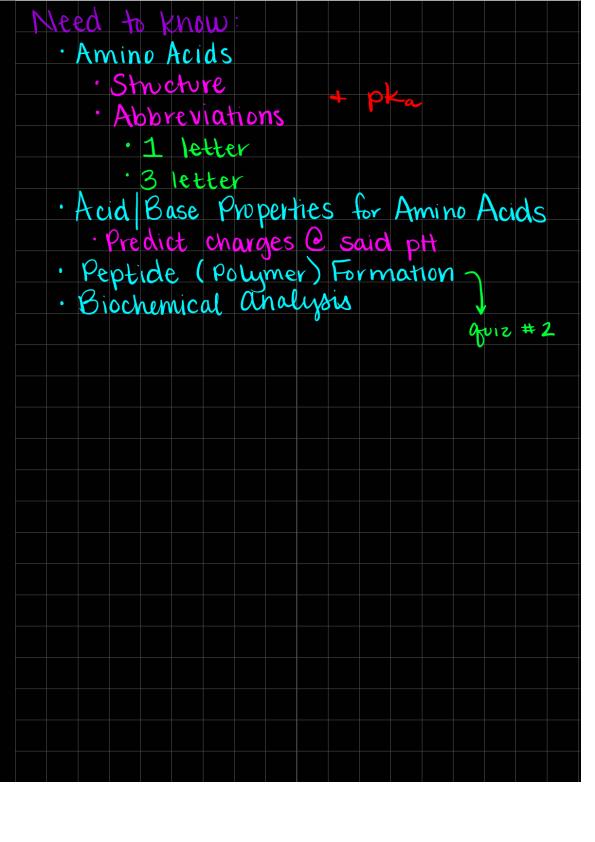 Need to know:
· Amino Acids
· Structure
+ pka
· Abbreviations
· 1 letter
· 3 letter
· Acid/Base Properties for Amino Acids
· Predict charges @ said pH
· Peptide (Polymer) Formation
· Biochemical Analysis
quiz #2